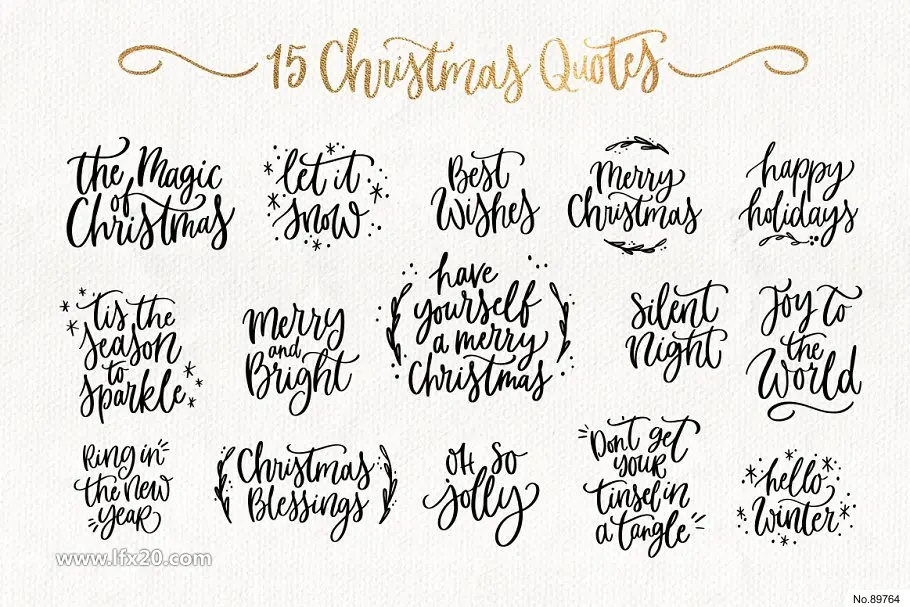 15 Christmas Quotes
the Magic
of
Christmas
let it
snow
Best
Wishes
Merry
Christmas
happy
holidays
'tis the
season
to
sparkle
Merry
and
Bright
have
yourself
a merry
Christmas
Silent
Night
Joy to
the
World
Ring in
the new
year
Christmas
Blessings
oh so
jolly
Dont get
your
tinsel in
a tangle
hello
Winter
www.lfx20.com
No.89764